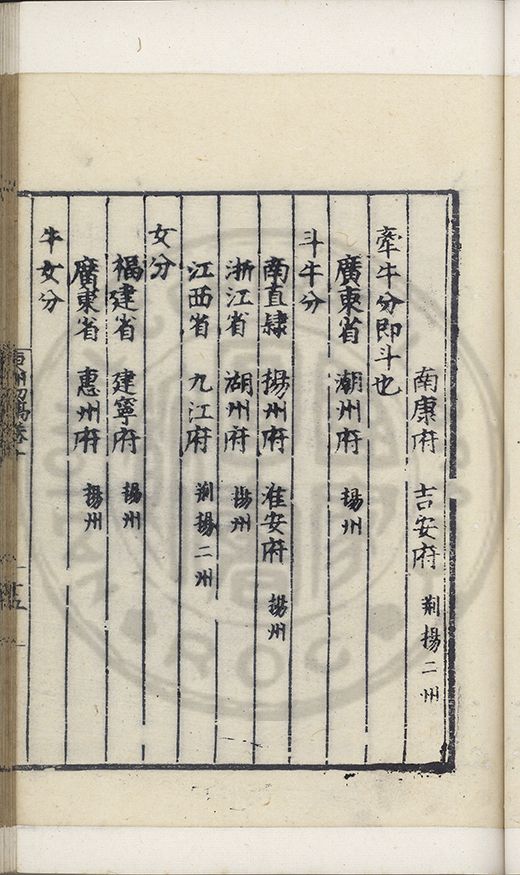 南康府 吉安府 荆揚二州
牽牛分即斗也
廣東省 潮州府 揚州
斗牛分
南直隸 揚州府 淮安府 揚州
浙江省 湖州府 揚州
江西省 九江府 荆揚二州
女分
福建省 建寧府 揚州
廣東省 惠州府 揚州
牛女分